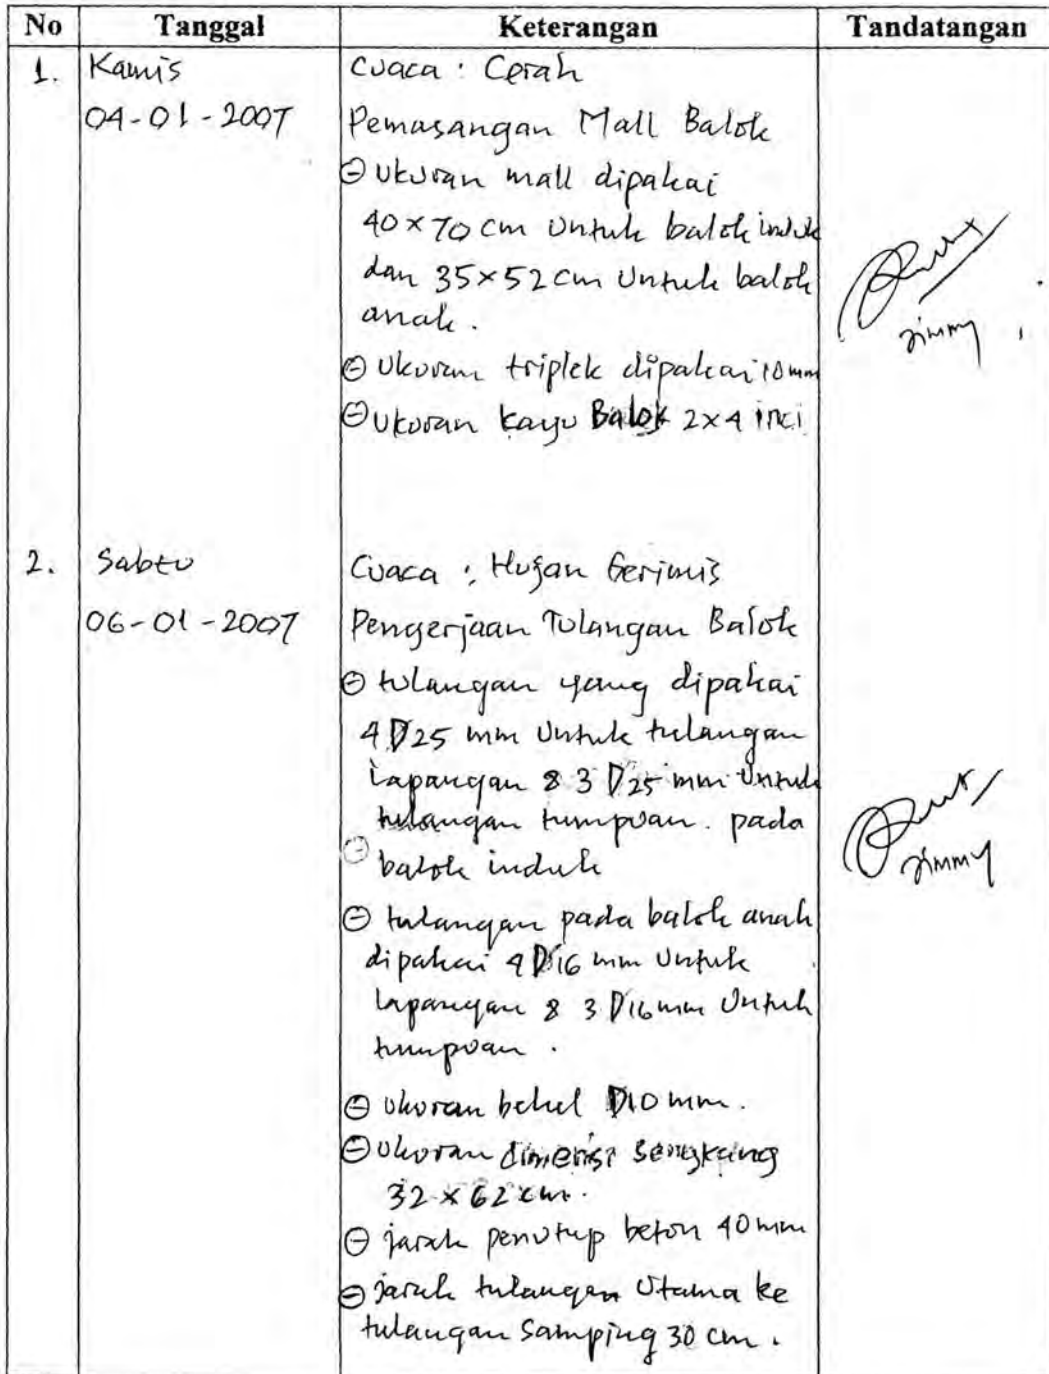 No Tanggal Keterangan Tandatangan
1. Kamis Cuaca : Cerah
04-01-2007 Pemasangan Mall Balok
⊖ Ukuran mall dipakai
40 x 70 cm Untuk balok induk
dan 35 x 52 cm Untuk balok
anak.
⊖ Ukuran triplek dipakai 10 mm
⊖ Ukuran kayu Balok 2x4 inci
Jimmy
2. Sabtu Cuaca : Hujan Gerimis
06-01-2007 Pengerjaan Tulangan Balok
⊖ tulangan yang dipakai
4 D25 mm Untuk tulangan
Lapangan & 3 D25 mm Untuk
tulangan tumpuan. pada
⊖ balok induk
⊖ tulangan pada balok anak
dipakai 4 D16 mm Untuk
lapangan & 3 D16 mm Untuk
tumpuan.
⊖ Ukuran behel D10 mm.
⊖ Ukuran dimensi sengkang
32 x 62 cm.
⊖ jarak penutup beton 40 mm
⊖ jarak tulangan Utama ke
tulangan samping 30 cm.
Jimmy